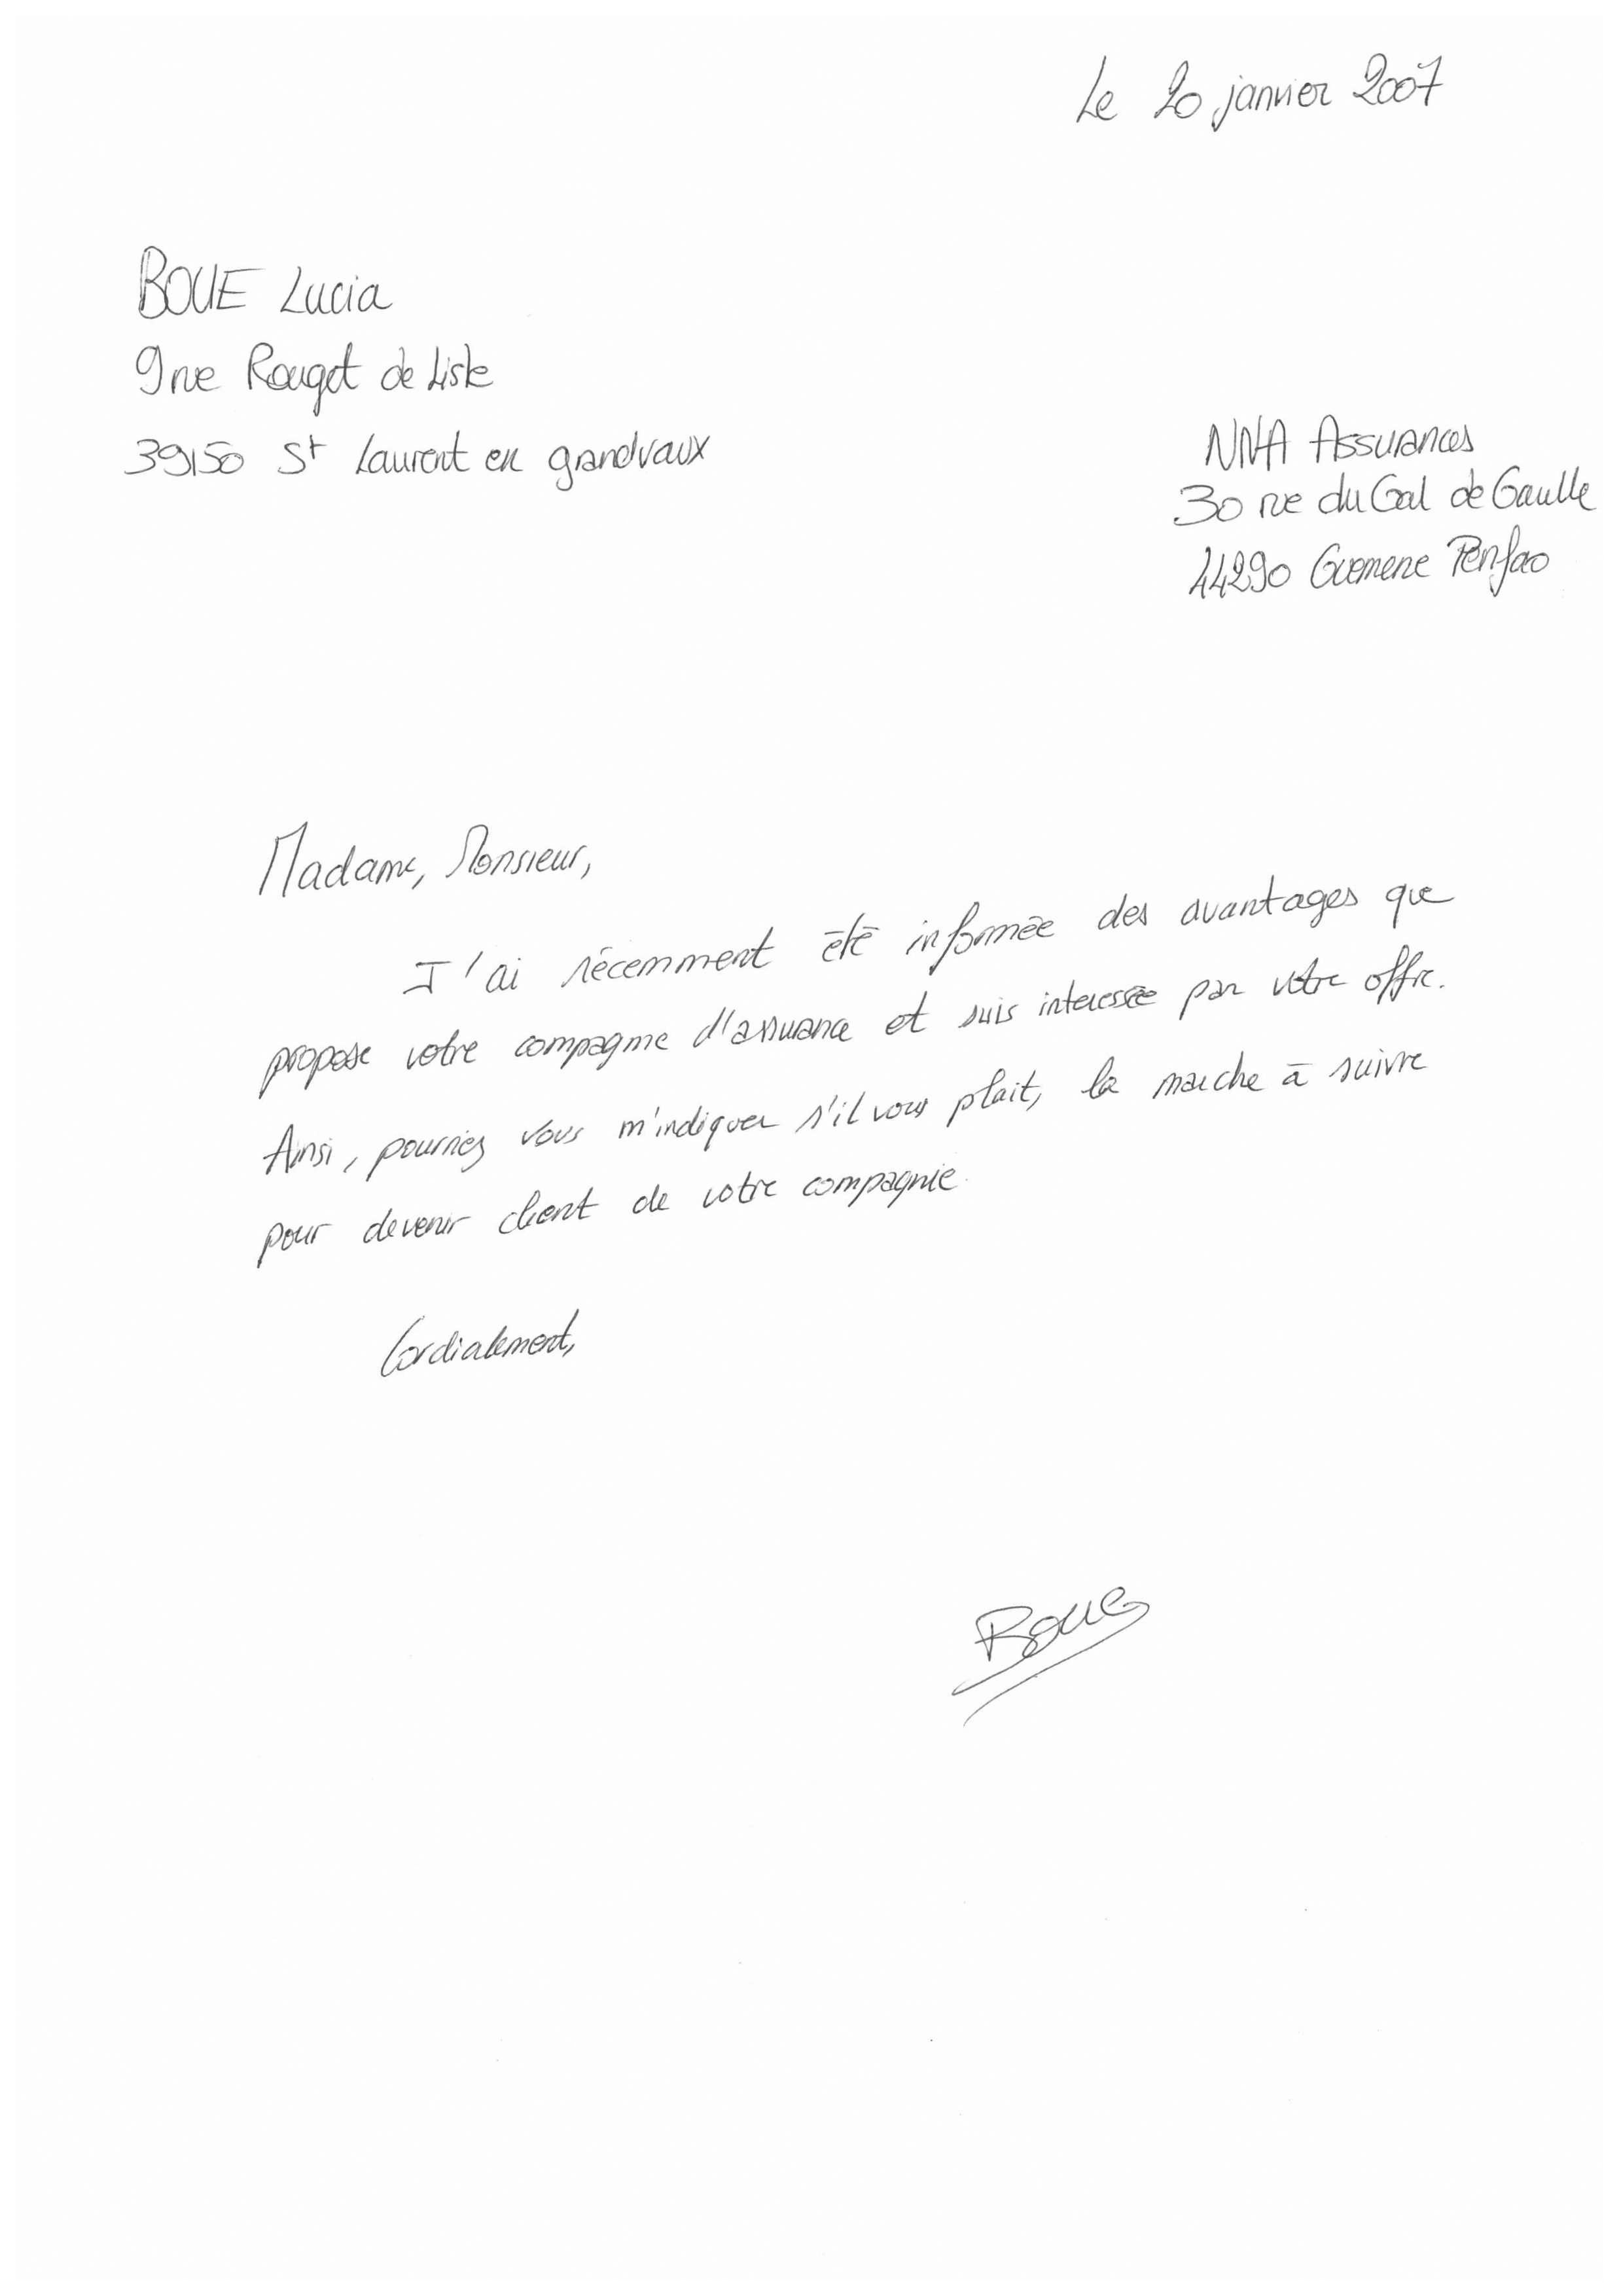 Le 20 janvier 2007
BOUE Lucia
9 rue Rouget de Lisle
39150 St Laurent en grandvaux
NNA Assurances
30 rue du Gal de Gaulle
44290 Guemene Penfao
Madame, Monsieur,
J'ai récemment été informée des avantages que
propose votre compagnie d'assurance et suis interessée par votre offre.
Ainsi, pourriez vous m'indiquer s'il vous plait, la marche à suivre
pour devenir client de votre compagnie.
Cordialement,
Boue